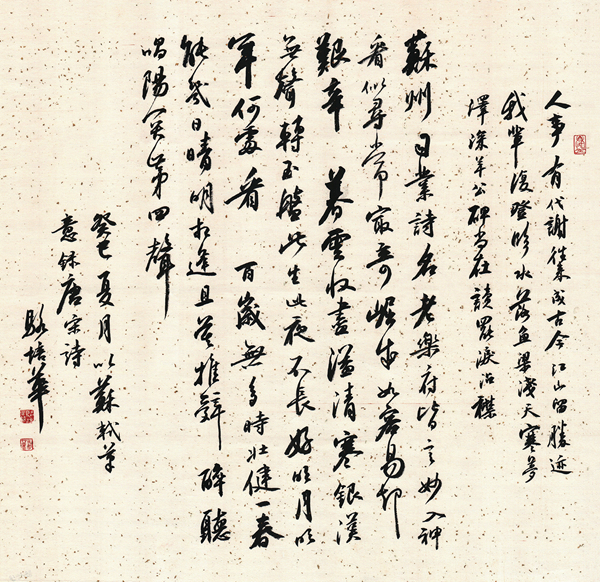 人事有代謝往来成古今江山留勝迹
我輩復登臨水落魚梁淺天寒夢
澤深羊公碑尚在讀罷淚沾襟
蘇州司業詩名老樂府皆言妙入神
看似尋常最奇崛成如容易却
艱辛 暮雲收盡溢清寒銀漢
無聲轉玉盤此生此夜不長好明月明
年何處看 百歲無多時壯健一春
能幾日晴明相逢且莫推辭醉聽
唱陽關第四聲
癸巳夏月以蘇軾筆
意録唐宋詩
駱培華